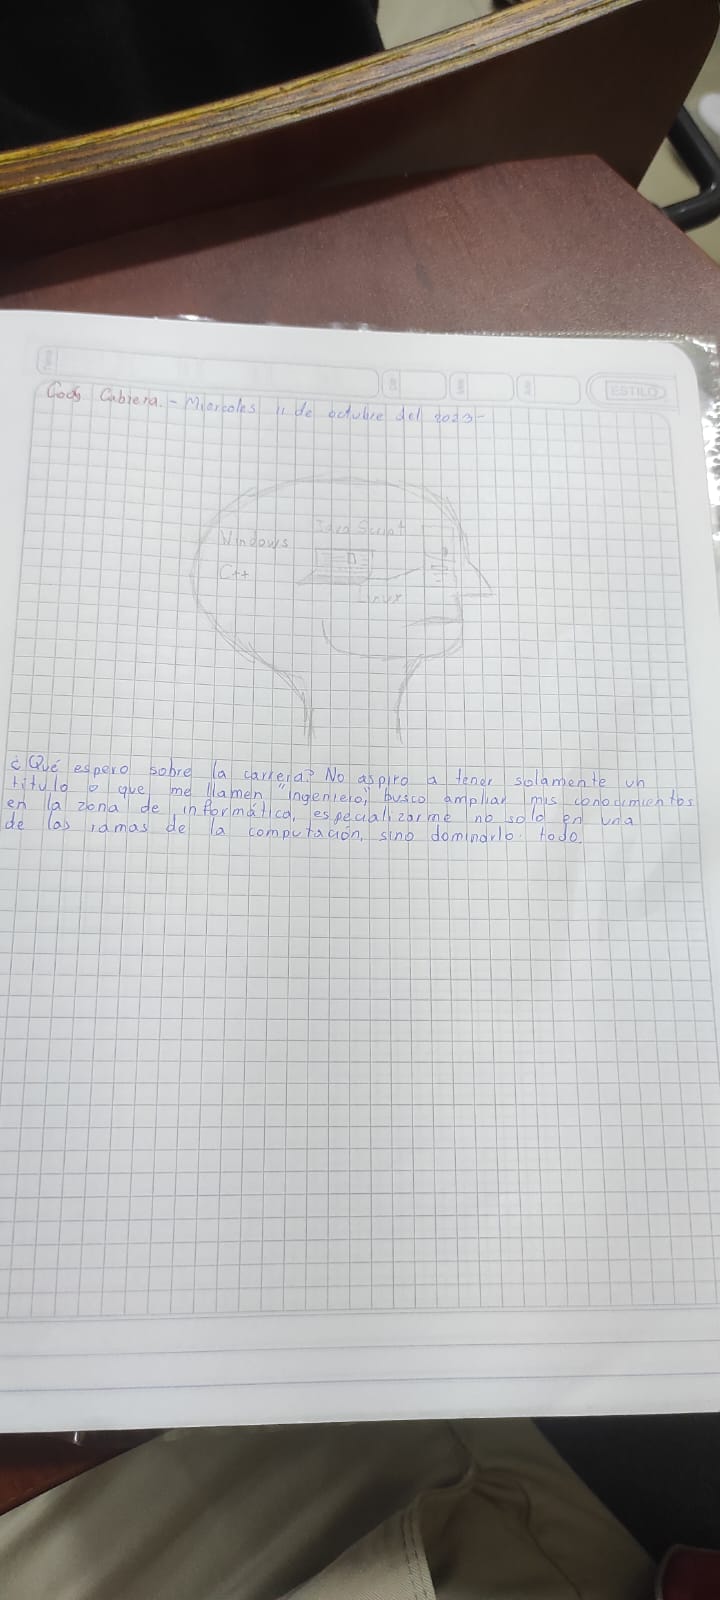 ESTILO
Cody Cabrera.- Miercoles 11 de octubre del 2023-
Java Script
Windows
C++
Linux
¿Qué espero sobre la carrera? No aspiro a tener solamente un
titulo o que me llamen "ingeniero", busco ampliar mis conocimientos
en la zona de informática, especializarme no solo en una
de las ramas de la computación, sino dominarlo todo.